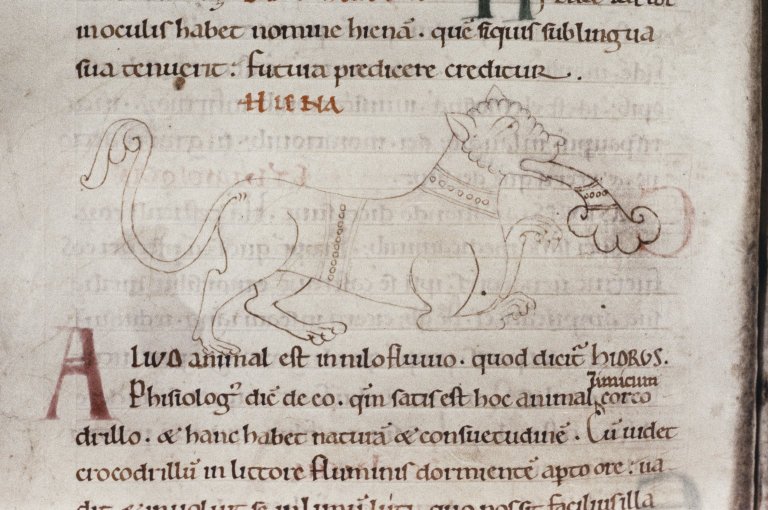 inoculis habet nomine hienā. quē siquis sub lingua
sua tenuerit: futura predicere creditur..
HIENA
ALIUD animal est in nilo fluvio. quod dicit̄ hIDRUS.
Phisiolog᾿ dic̄ de eo. qm̄ satis est hoc animal
Inimicum
corco
drillo. & hanc habet naturā & consuetudinē. Cū videt
crocodrillū in littore fluminis dormientē apto ore: va